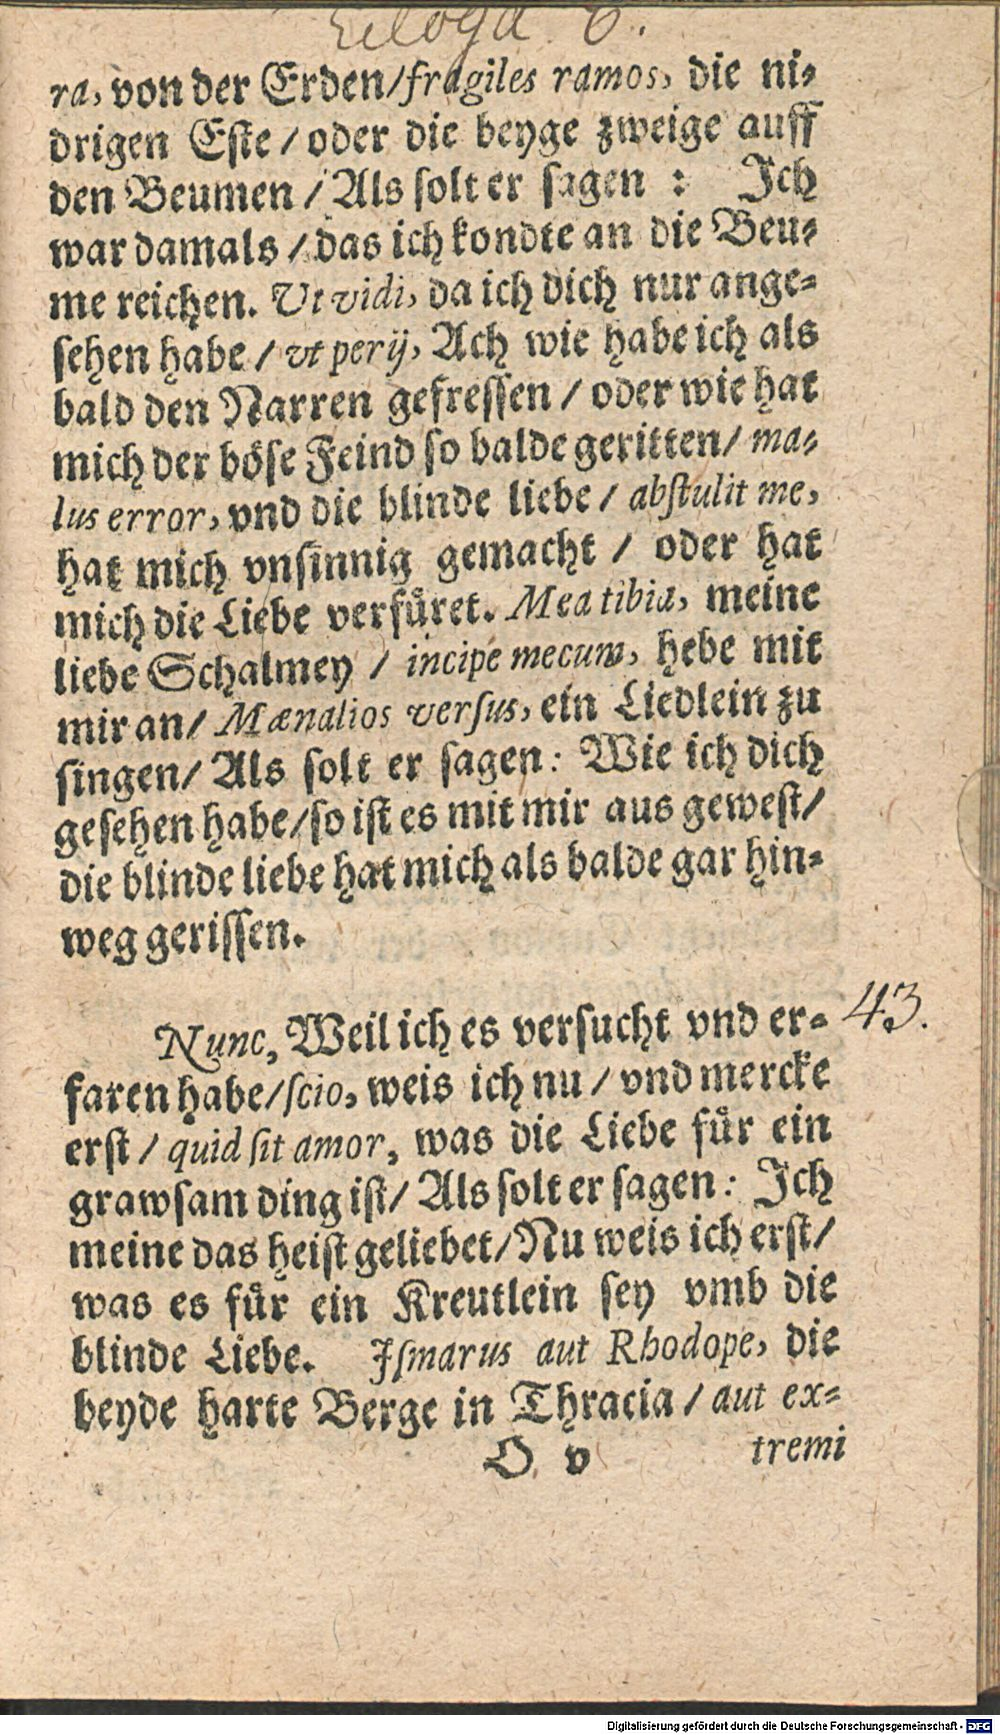 Ecloga 8.
ra, von der Erden/fragiles ramos, die ni-
drigen Este / oder die beyge zweige auff
den Beumen / Als solt er sagen : Ich
war damals / das ich kondte an die Beu-
me reichen. Vt vidi, da ich dich nur ange-
sehen habe / vt perij, Ach wie habe ich als
bald den Narren gefressen / oder wie hat
mich der böse Feind so balde geritten/ ma-
lus error, vnd die blinde liebe / abstulit me,
hat mich vnsinnig gemacht / oder hat
mich die Liebe verfüret. Mea tibia, meine
liebe Schalmey / incipe mecum, hebe mit
mir an/ Mænalios versus, ein Liedlein zu
singen/ Als solt er sagen: Wie ich dich
gesehen habe/so ist es mit mir aus gewest/
die blinde liebe hat mich als balde gar hin-
weg gerissen.
Nunc, Weil ich es versucht vnd er- 43.
faren habe/scio, weis ich nu / vnd mercke
erst / quid sit amor, was die Liebe für ein
grawsam ding ist/ Als solt er sagen: Ich
meine das heist geliebet/Nu weis ich erst/
was es für ein Kreutlein sey vmb die
blinde Liebe. Ismarus aut Rhodope, die
beyde harte Berge in Thracia / aut ex-
O v tremi
Digitalisierung gefördert durch die Deutsche Forschungsgemeinschaft - DFG